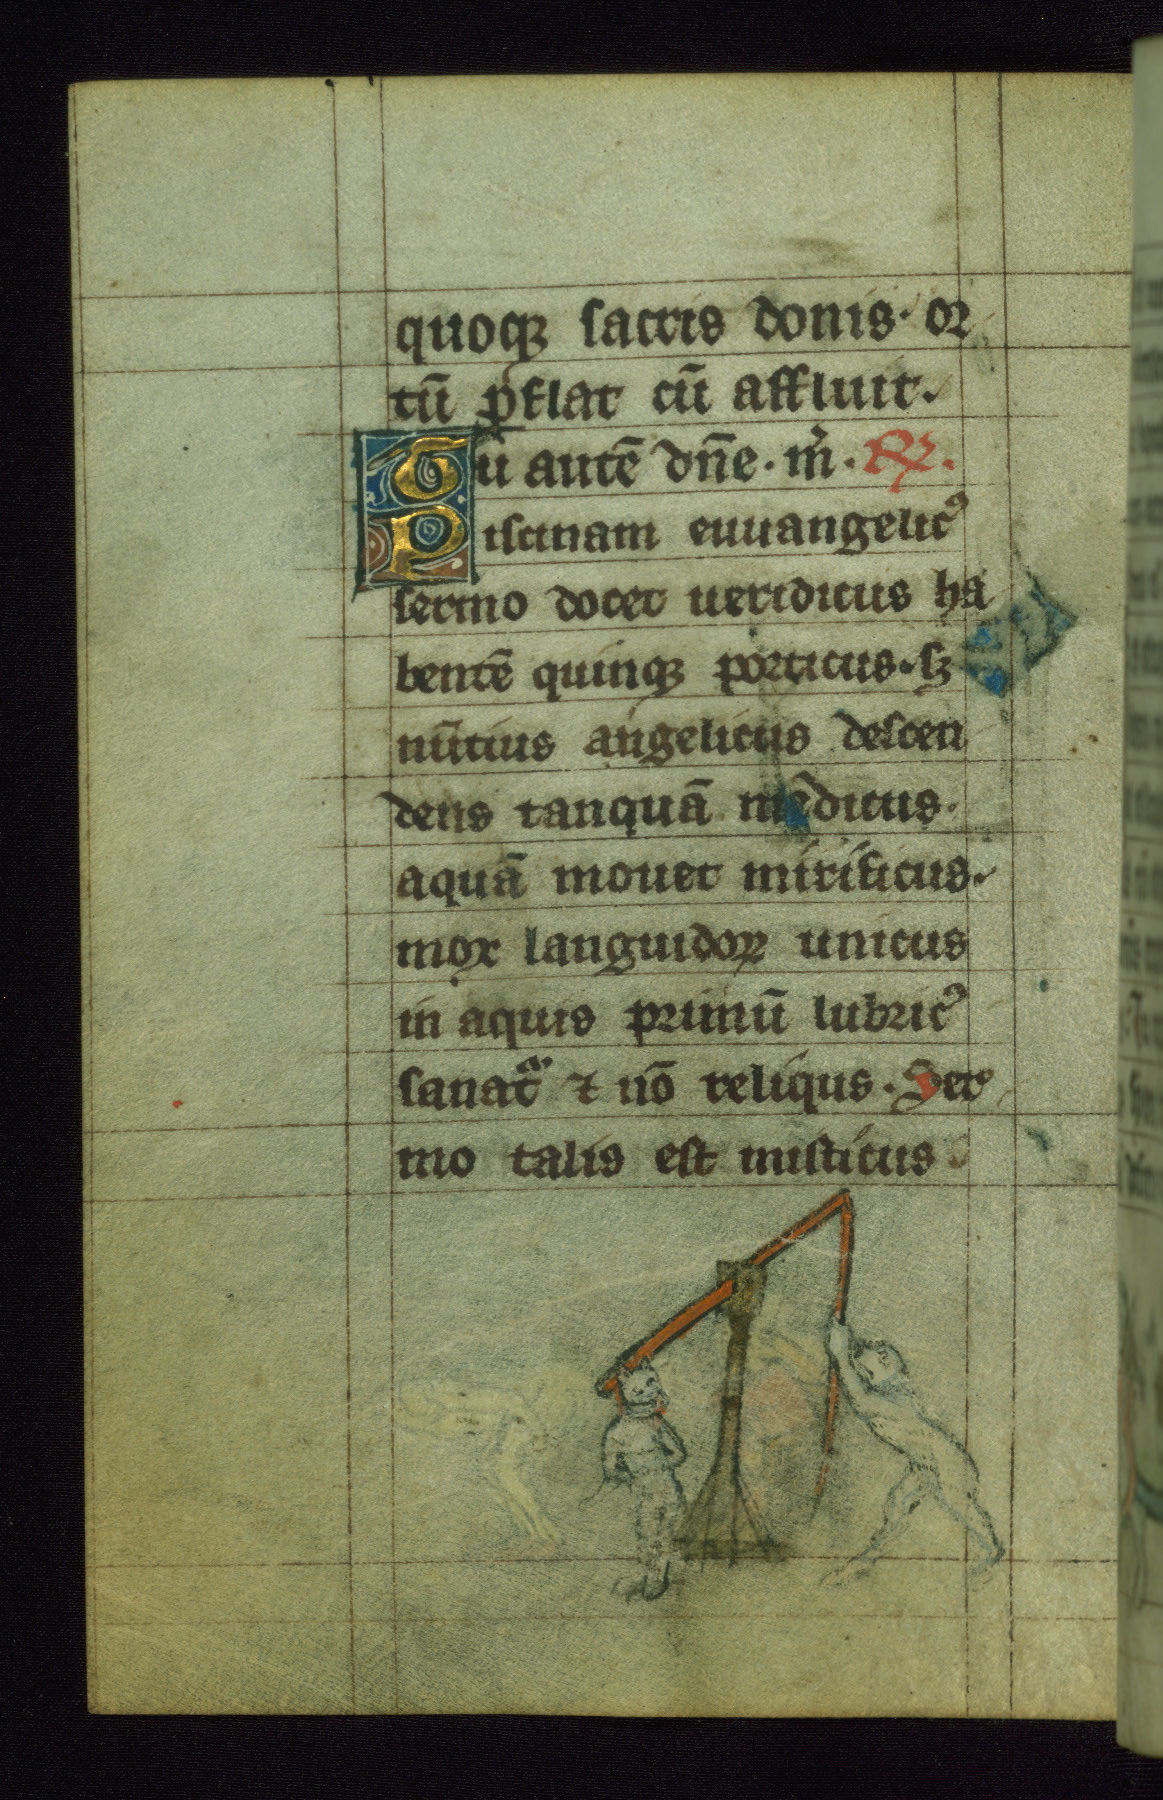 quoqꝫ sacris donis· or
tū p̄stat cū affluit.
Tu autē dn̄e· m̄· ℟.
Piscinam euuangelicꝰ
sermo docet ueridicus ha
bentē quinqꝫ porticus· sꝫ
nūtius angelicus descen
dens tanquā medicus·
aquā mouet mirificus·
mox languidoꝝ unicus
in aquis primū lubricꝰ
sanatᵃ ⁊ nō reliqus· Ser
mo talis est misticus